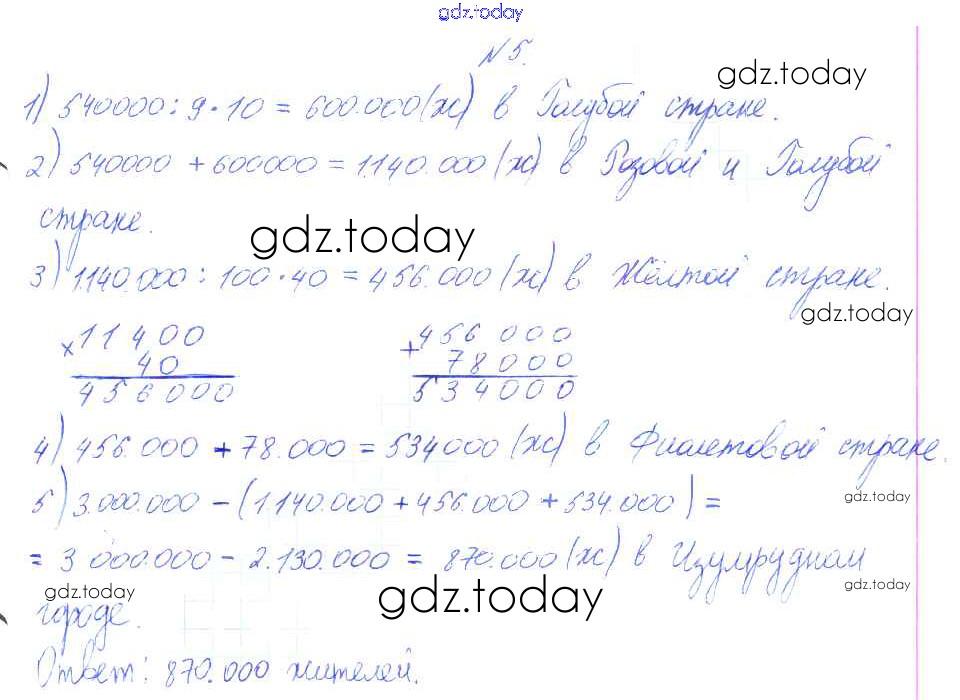 gdz.today
№ 5.
gdz.today
1) 540000 : 9 · 10 = 600.000 (ж) в Голубой стране.
2) 540000 + 600000 = 1140.000 (ж) в Розовой и Голубой
стране.
gdz.today
3) 1140.000 : 100 · 40 = 456.000 (ж) в Жёлтой стране.
gdz.today
× 11400 + 456 000
40 78000
456000 534000
4) 456.000 + 78.000 = 534000 (ж) в Фиолетовой стране.
5) 3.000.000 – (1.140.000 + 456.000 + 534.000) =
gdz.today
= 3 000.000 – 2.130.000 = 870.000 (ж) в Изумрудном
gdz.today gdz.today gdz.today
городе.
Ответ: 870.000 жителей.